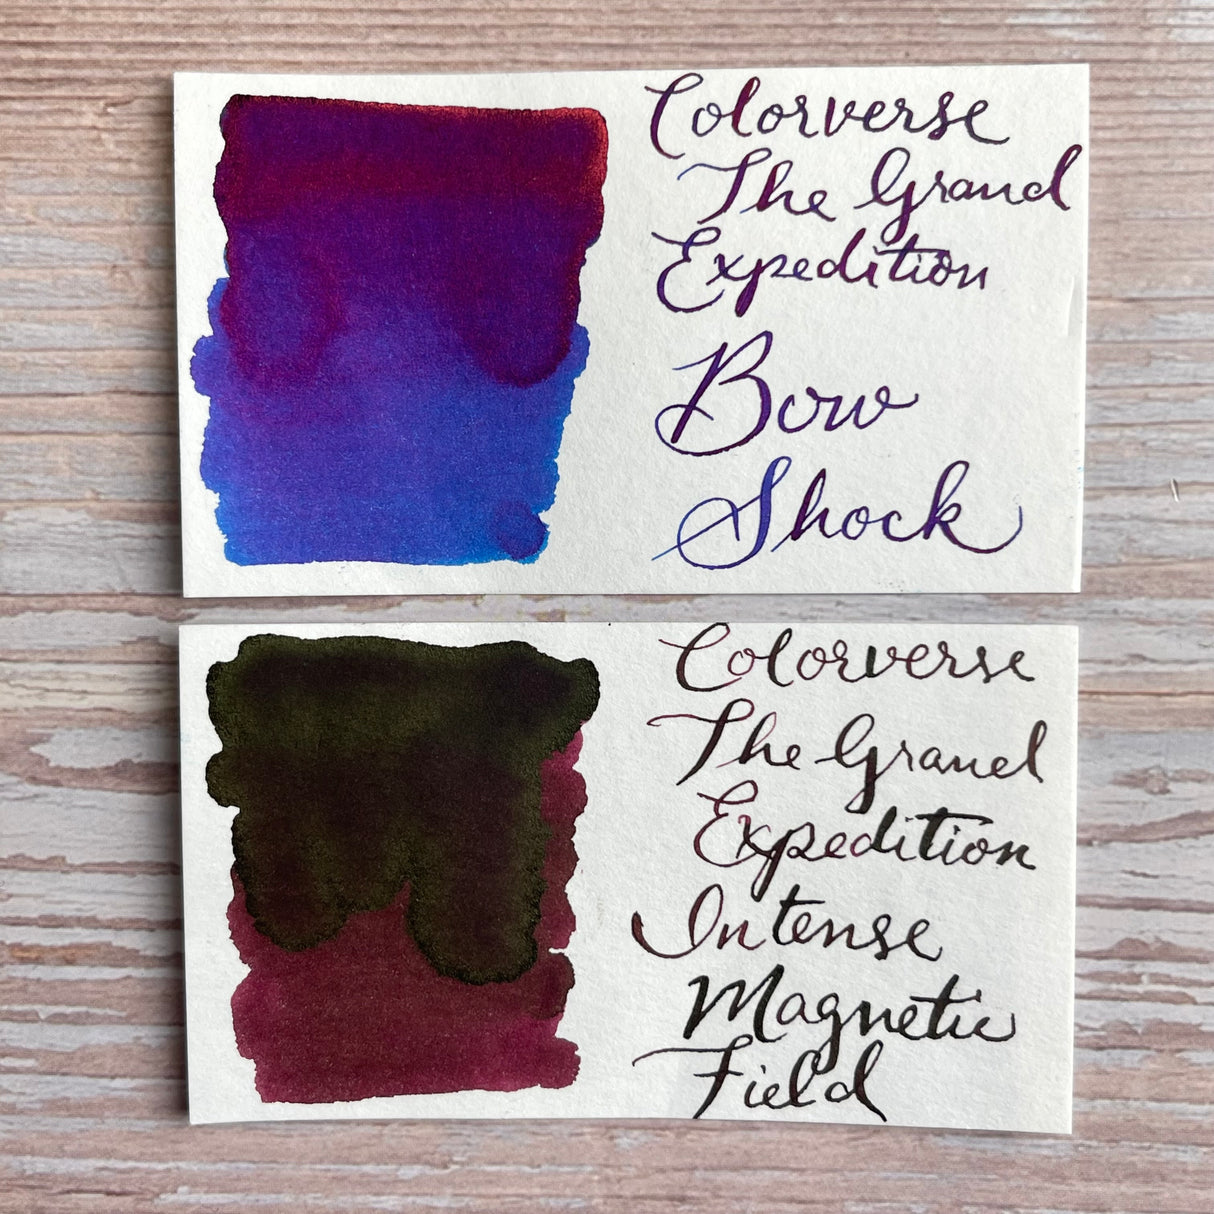 Colorverse
The Grand
Expedition
Bow
Shock
Colorverse
The Grand
Expedition
Intense
Magnetic
Field